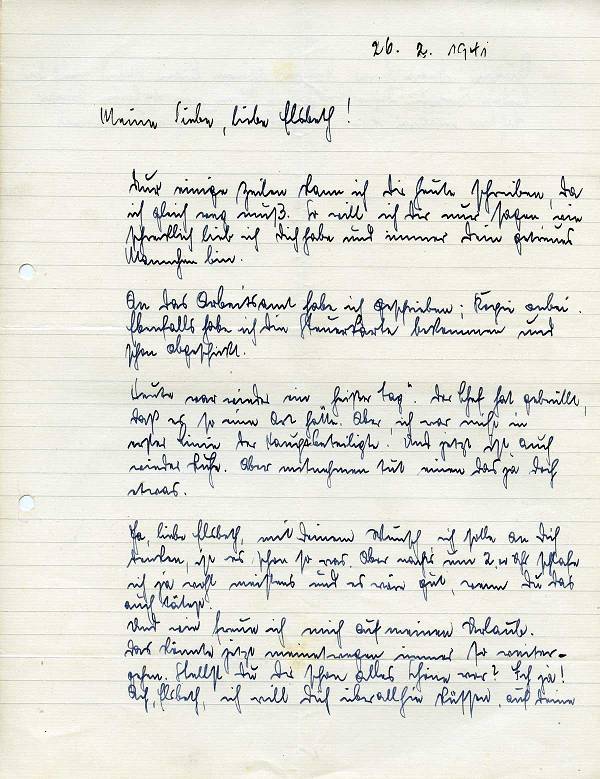 26. 2. 1941
Meine Liebe, liebe Elsbeth!
Nur einige Zeilen kann ich Dir heute schreiben, da
ich gleich weg muß. So will ich Dir nur sagen, wie
schrecklich lieb ich Dich habe und immer Dein getreues
Mannchen bin.
An das Arbeitsamt habe ich geschrieben; Kopie anbei.
Ebenfalls habe ich die Steuerkarte bekommen und
schon abgeschickt.
Heute war wieder ein "heißer Tag". Der Chef hat gebrüllt,
daß es so eine Art hatte. Aber ich war nicht in
erster Linie der Hauptbeteiligte. Und jetzt ist auch
wieder Ruhe. Aber mitnehmen tut einen das ja doch
etwas.
Ja, liebe Elsbeth, mit Deinem Wunsch ich solle an Dich
denken, ist es schon so was. Aber nachts um 2.00 Uhr schlafe
ich ja wohl meistens und es wäre gut, wenn Du das
auch tätest.
Und wie freue ich mich auf meinen Urlaub.
Das könnte jetzt meinetwegen immer so weiter-
gehen. Stellst Du Dir schon alles Schöne vor? Ich ja!
Ach, Elsbeth, ich will Dich überallhin küssen, auf Deine